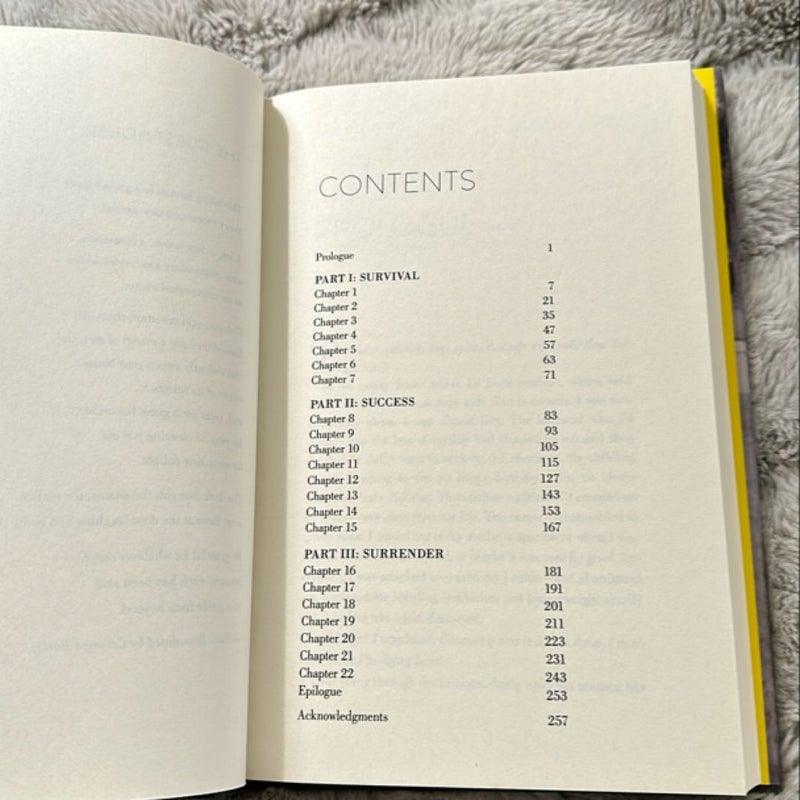 CONTENTS
Prologue 1
PART I: SURVIVAL
Chapter 1 7
Chapter 2 21
Chapter 3 35
Chapter 4 47
Chapter 5 57
Chapter 6 63
Chapter 7 71
PART II: SUCCESS
Chapter 8 83
Chapter 9 93
Chapter 10 105
Chapter 11 115
Chapter 12 127
Chapter 13 143
Chapter 14 153
Chapter 15 167
PART III: SURRENDER
Chapter 16 181
Chapter 17 191
Chapter 18 201
Chapter 19 211
Chapter 20 223
Chapter 21 231
Chapter 22 243
Epilogue 253
Acknowledgments 257